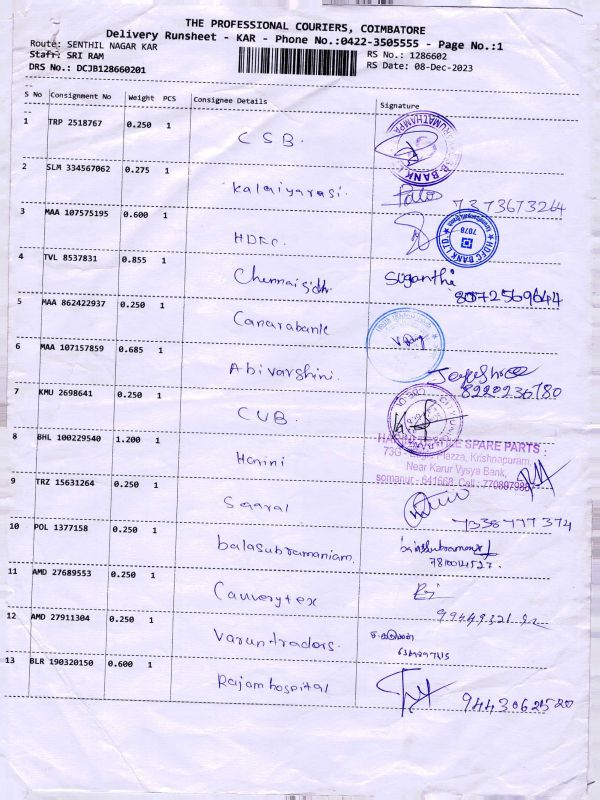 THE PROFESSIONAL COURIERS, COIMBATORE
Delivery Runsheet - KAR - Phone No.:0422-3505555 - Page No.:1
Route: SENTHIL NAGAR KAR RS No.: 1286602
Staff: SRI RAM RS Date: 08-Dec-2023
DRS No.: DCJB128660201
S No Consignment No Weight PCS Consignee Details Signature
1 TRP 2518767 0.250 1 CSB.
2 SLM 334567062 0.275 1 Kalaiyarasi. 7373673264
3 MAA 107575195 0.600 1 HDFC. HDFC BANK LTD 7078
4 TVL 8537831 0.855 1 Chennaisidh. Suganthi
8072569644
5 MAA 862422937 0.250 1 Canarabank
6 MAA 107157859 0.685 1 Abivarshini.
8220236780
7 KMU 2698641 0.250 1 CUB.
SPARE PARTS :
73G Plazza, Krishnapuram,
8 BHL 100229540 1.200 1 Harini Near Karur Vysya Bank,
somanur - 641668. Cell :
9 TRZ 15631264 0.250 1 Saaral
7338777374
10 POL 1377158 0.250 1 balasubramaniam. balasubramani
11 AMD 27689553 0.250 1 Cauverytex
12 AMD 27911304 0.250 1 Varuntradors.
13 BLR 190320150 0.600 1 Rajamhospital 9443062520